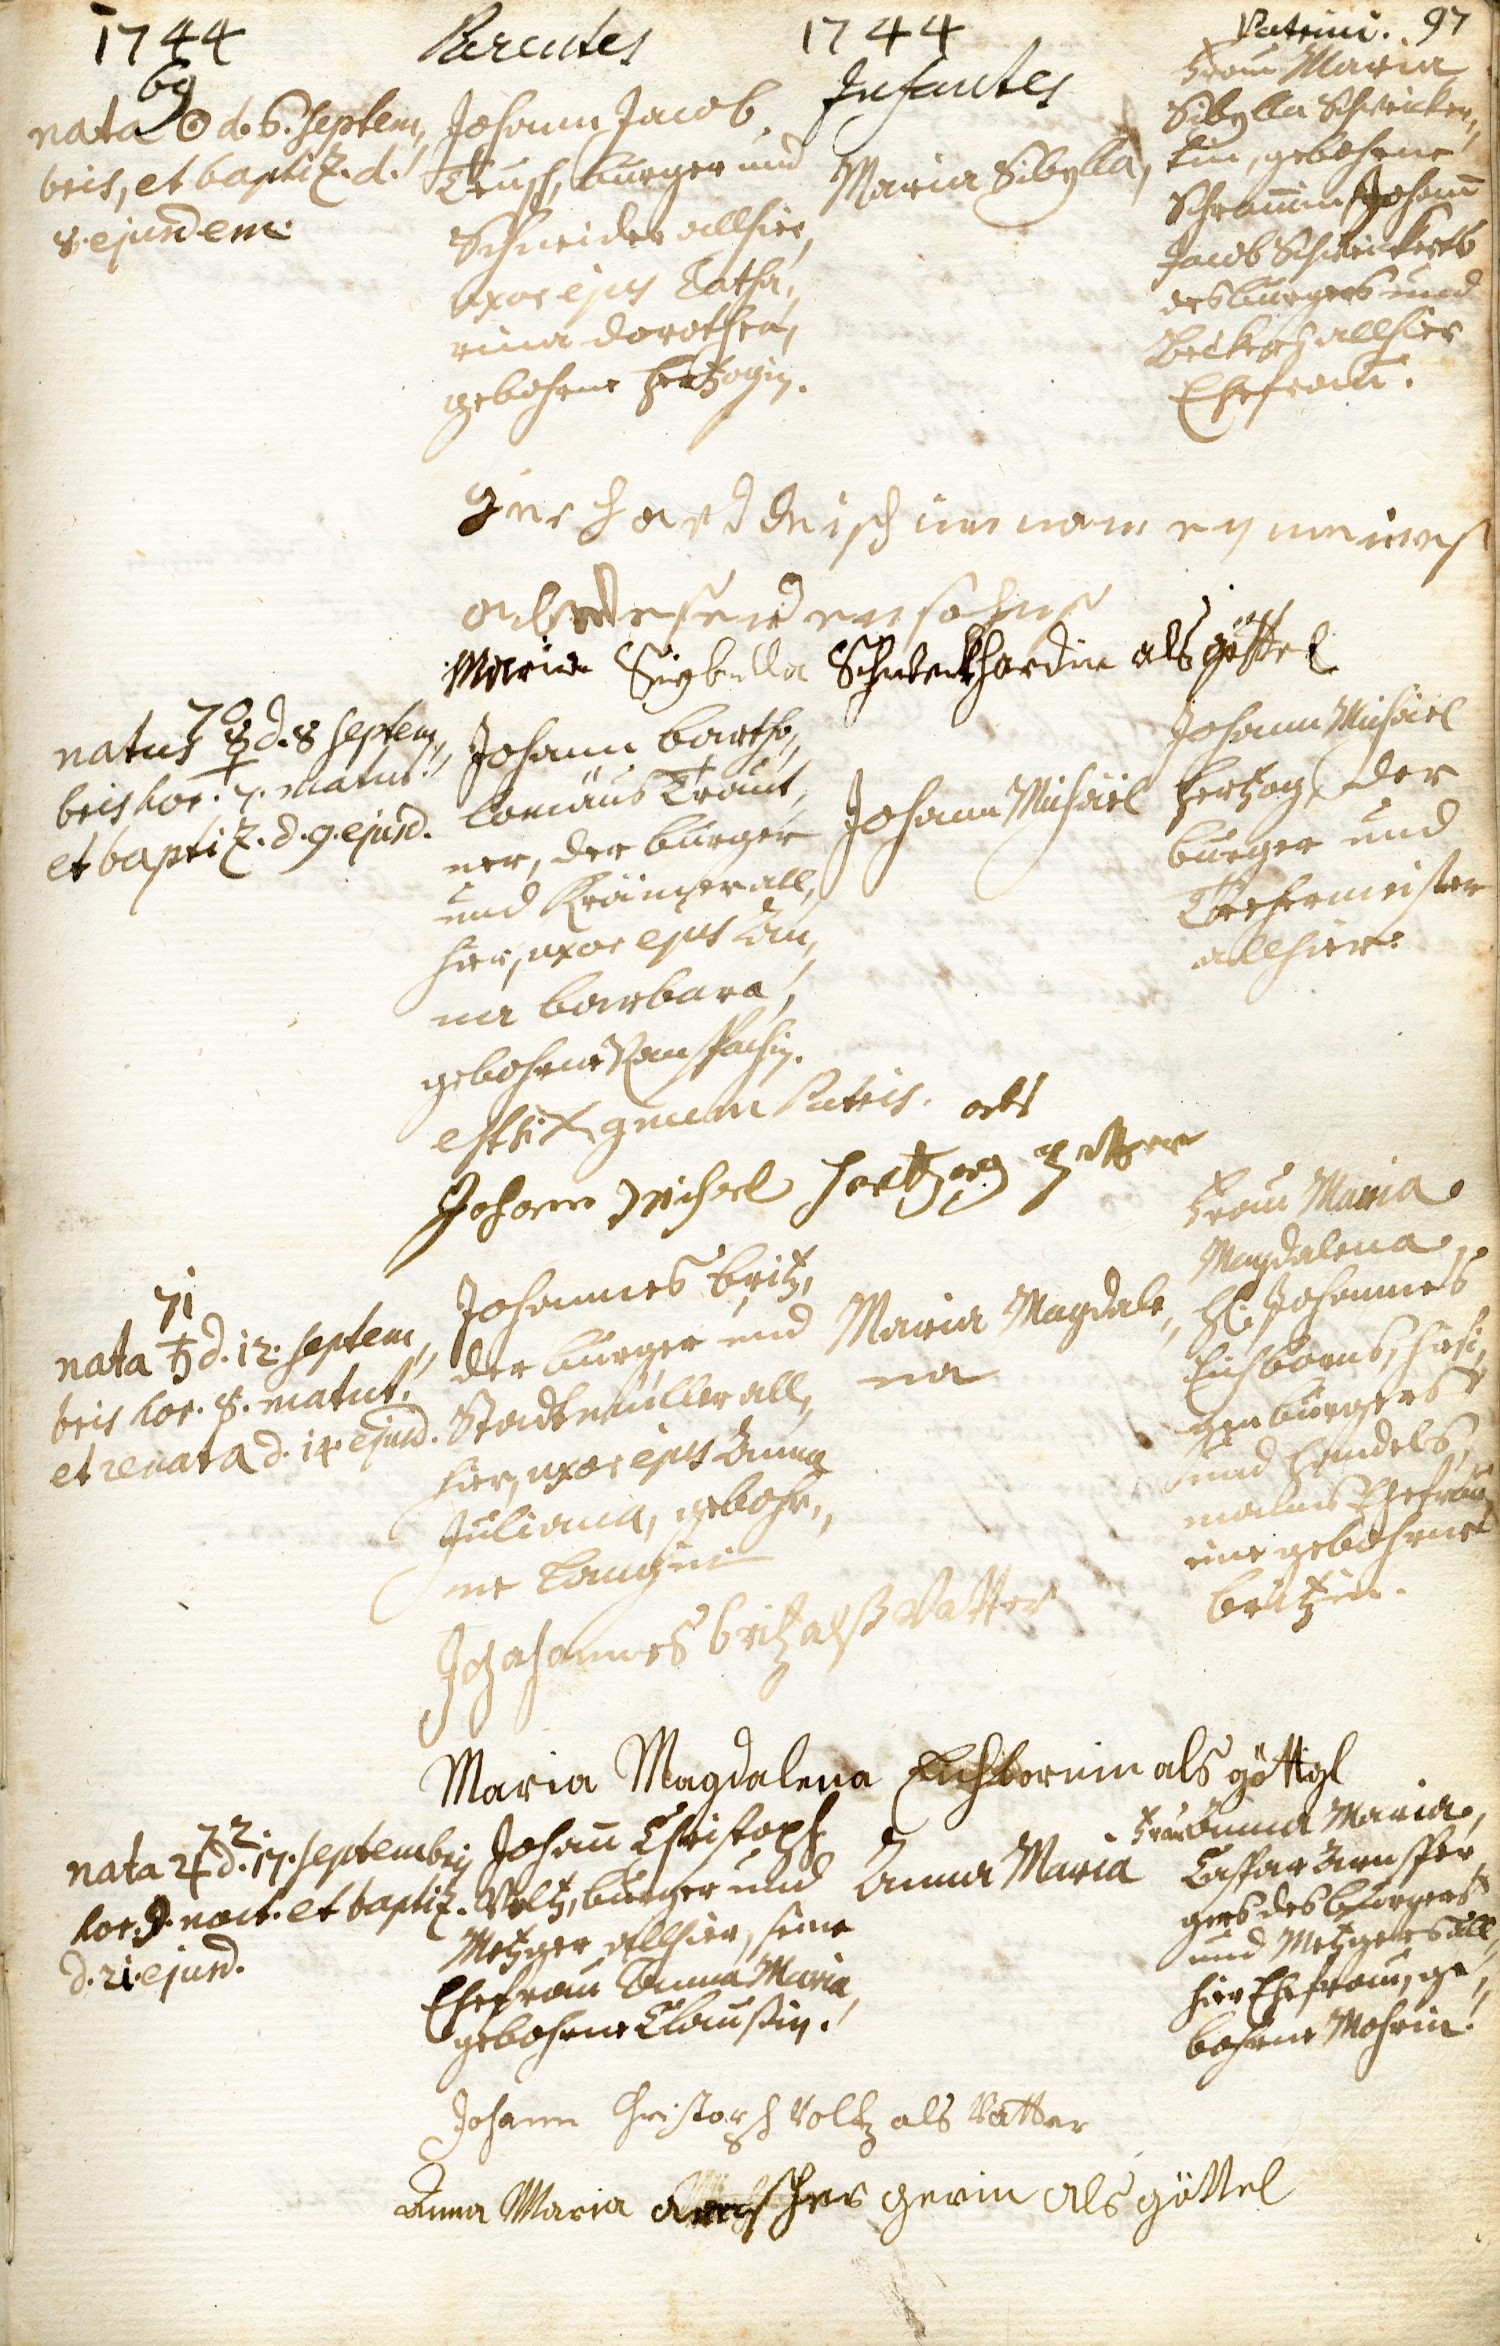 1744
Parentes
1744
Infantes
Patrini. 97
69
nata ☉ d. 6. Septem„
bris, et baptiz. d.
8. ejusdem.
Johann Jacob
Teusch, burger und
Schneider allhier,
uxor ejus Catha„
rina Dorothea,
gebohrne Hertzogin.
Maria Sibylla,
Frau Maria
Sibylla Schweicker„
tin, gebohrne
Schrammin Johann
Jacob Schweickerts
des burgers und
Beckers allhier
Ehefrau.
im namen meines
abwesenden sohns
Maria Sigbella Schweickhardin als göttel
70
natus ☿ d. 8 Septem„
bris hor. 7. matut.
et baptiz. d. 9. ejusd.
Johann Bartho„
lomäus Traut„
ner, der burger
und Krämer all„
hier, uxor ejus An„
na Barbara,
gebohrne
Johann Michael
Johann Michael
Hertzog, der
burger und
allhier.
als
Johann Michael Hertzog götter
71
nata ♄ d. 12. Septem„
bris hor. 8. matut.
et renata d. 14. ejusd.
Johannes Britz,
der burger und
Stadtmüller all„
hier, uxor ejus Anna
Juliana, gebohr„
ne Langin
Maria Magdale„
na
Frau Maria
Magdalena,
H. Johannes
Eichborns, hiesi„
gen burgers
und Handels„
manns Ehefrau,
eine gebohrne
Britzin.
Johannes Britz alß Vatter
Maria Magdalena Eichbornin als göttel
72.
nata ♃ d. 17. Septembris
hor. 9. noct. et baptiz.
d. 21. ejusd.
Johann Christoph
Voltz, burger und
Metzger allhier, seine
Ehefrau Anna Maria
gebohrne Claußin.
Anna Maria
Frau Anna Maria,
Caspar Arnsper„
gers des burgers
und Metzgers all„
hier Ehefrau, ge„
bohrne Mohrin.
Johann Christoph Voltz als Vatter
Anna Maria als göttel